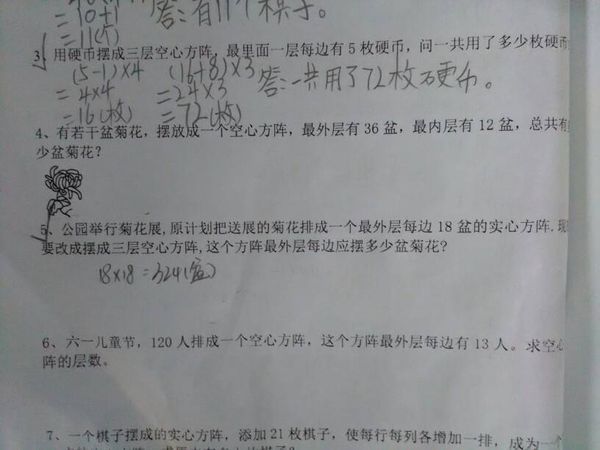 =10+1 答:有11个棋子。
=11(个)
3、用硬币摆成三层空心方阵，最里面一层每边有 5 枚硬币，问一共用了多少枚硬币
(5-1)×4 (16+8)×3 答:一共用了72枚硬币。
=4×4 =24×3
=16(枚) =72(枚)
4、有若干盆菊花，摆放成一个空心方阵，最外层有 36 盆，最内层有 12 盆，总共有
少盆菊花？
5、公园举行菊花展,原计划把送展的菊花排成一个最外层每边 18 盆的实心方阵.现
要改成摆成三层空心方阵,这个方阵最外层每边应摆多少盆菊花？
18×18=324(盆)
6、六一儿童节，120 人排成一个空心方阵，这个方阵最外层每边有 13 人。求空心
阵的层数。
7、一个棋子摆成的实心方阵，添加 21 枚棋子，使每行每列各增加一排，成为一个